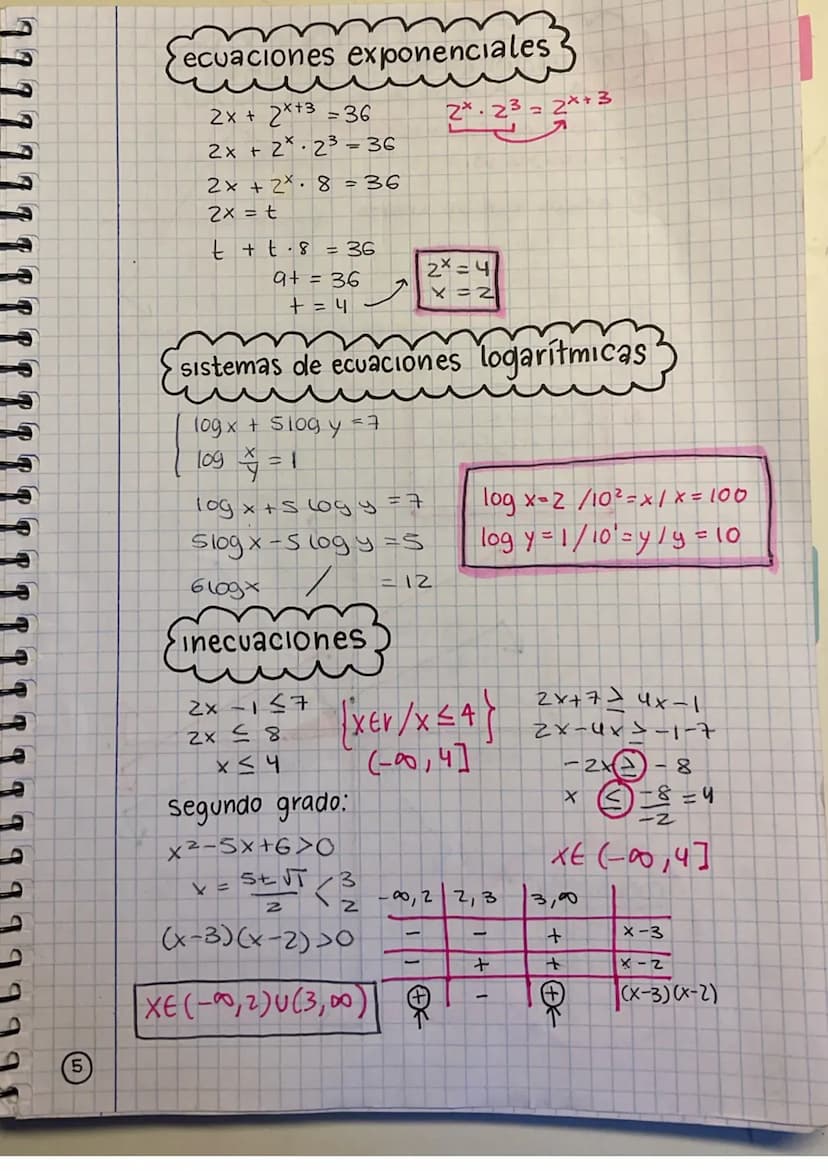 ecuaciones exponenciales
2x + 2ˣ⁺³ = 36
2ˣ · 2³ = 2ˣ⁺³
2x + 2ˣ · 2³ = 36
2x + 2ˣ · 8 = 36
2x = t
t + t · 8 = 36
9t = 36
t = 4
2ˣ = 4
x = 2
sistemas de ecuaciones logarítmicas
log x + 5 log y = 7
log x/y = 1
log x + 5 log y = 7
5 log x - 5 log y = 5
6 log x / = 12
log x = 2 / 10² = x / x = 100
log y = 1 / 10¹ = y / y = 10
inecuaciones
2x - 1 ≤ 7
2x ≤ 8
x ≤ 4
{x∈r / x ≤ 4}
(-∞, 4]
2x + 7 ≥ 4x - 1
2x - 4x ≥ -1 - 7
-2x ≥ -8
x ≤ -8/-2 = 4
x∈ (-∞, 4]
segundo grado:
x² - 5x + 6 > 0
x = 5 ± √1 / 2 < 3 2
(x-3)(x-2) > 0
x∈(-∞, 2) ∪ (3, ∞)
-∞, 2 | 2, 3 | 3, ∞
- | - | + | x - 3
- | + | + | x - 2
+ | - | + | (x-3)(x-2)
5